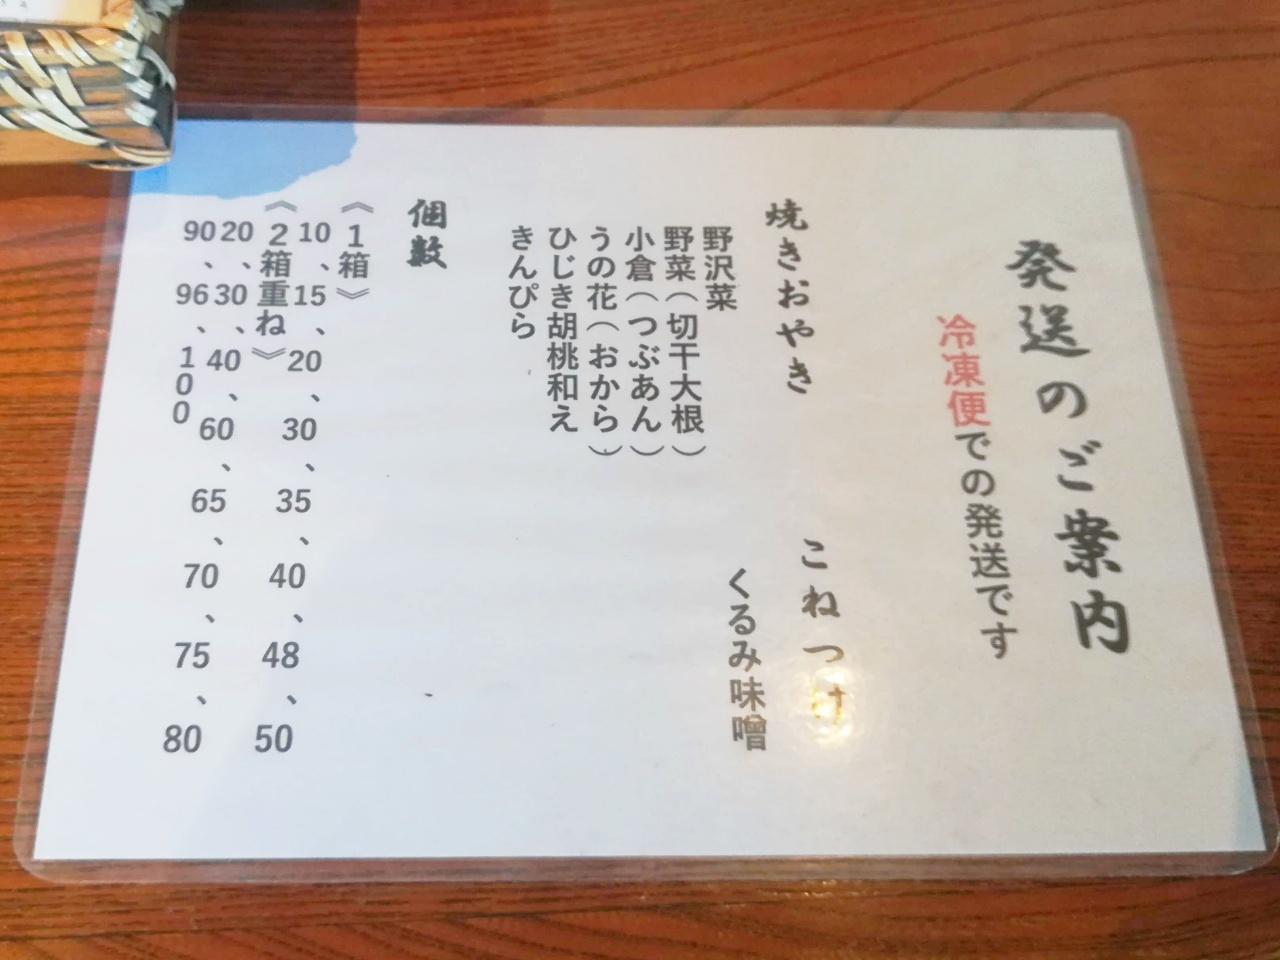 発送のご案内
冷凍便での発送です
焼きおやき
野沢菜
野菜（切干大根）
小倉（つぶあん）
うの花（おから）
ひじき胡桃和え
きんぴら
こねつけ
くるみ味噌
個数
《1箱》
10、15、20、30、35、40、48、50
《2箱重ね》
20、30、40、60、65、70、75、80
90、96、100